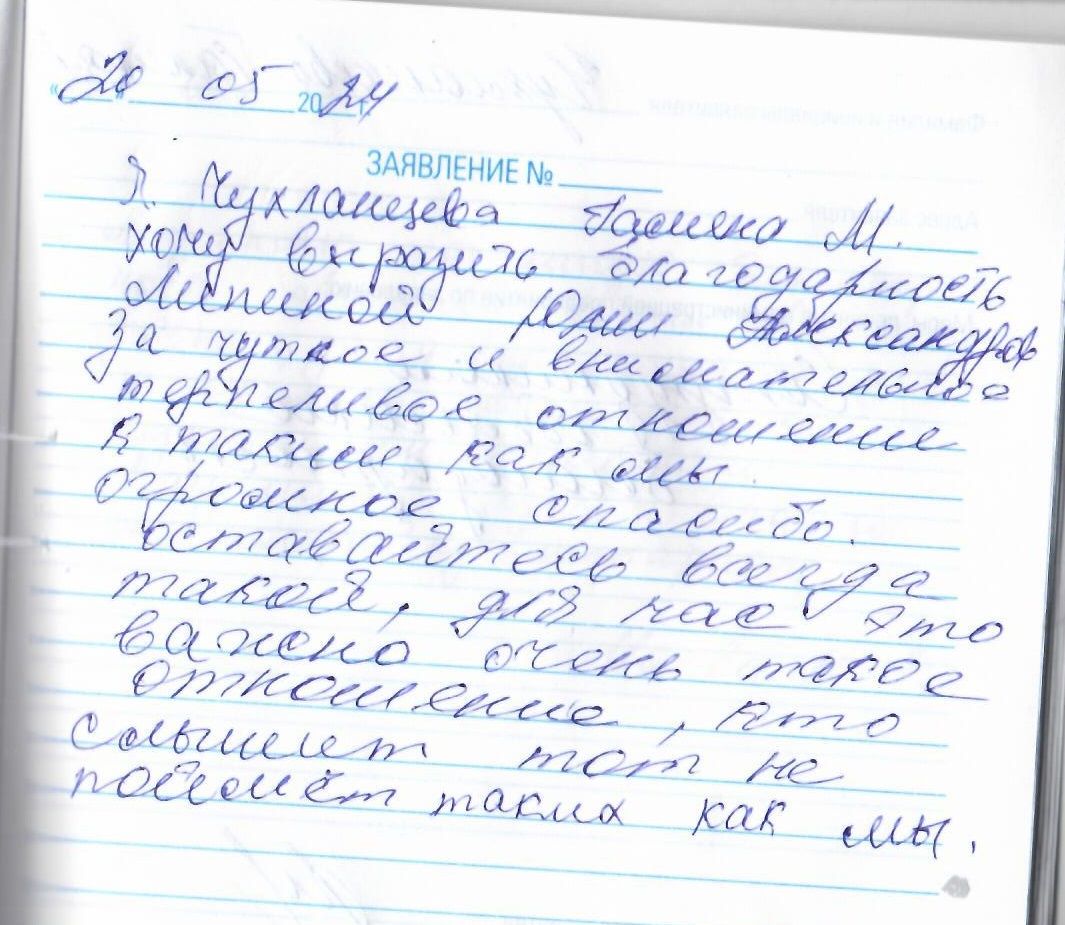 «20» 05 2024 г.
ЗАЯВЛЕНИЕ №
Я. Чухланцева Галина М.
хочу выразить благодарность
Лепиной Юлии Александров
За чуткое и внимательное
терпеливое отношение
к таким как мы.
огромное спасибо.
оставайтесь всегда
такой, для нас это
важно очень такое
отношение, кто
слышит тот не
поймёт таких как мы.